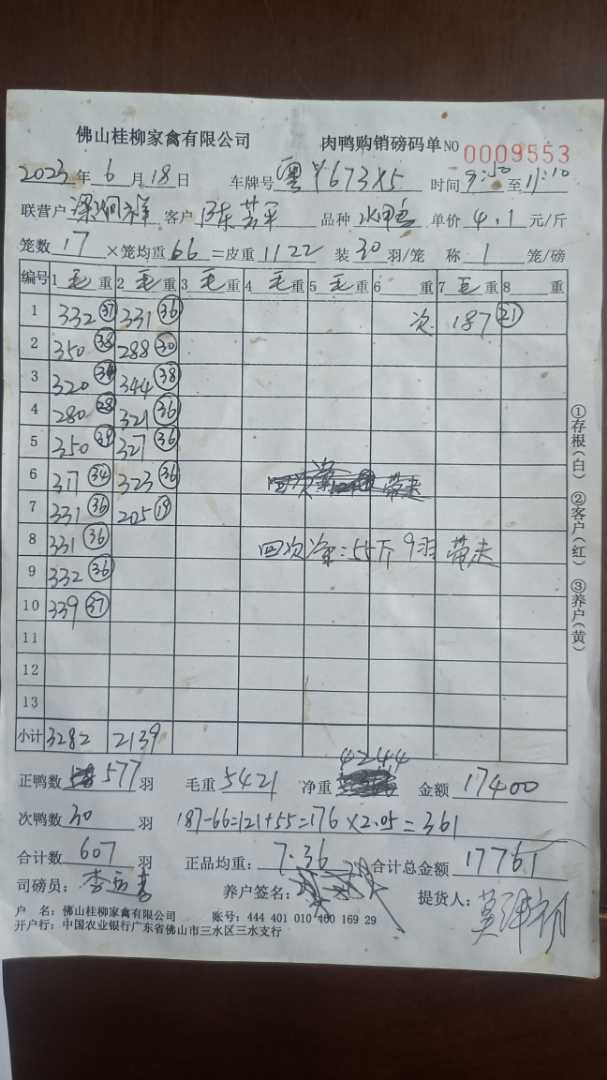 佛山桂柳家禽有限公司 肉鸭购销磅码单 NO 0009553
2023年 6月 18日 车牌号 粤 67385 时间 9:50 至 11:10
联营户 客户 陈芳军 品种 水鸭 单价 4.1 元/斤
笼数 17 ×笼均重 66 =皮重 1122 装 30 羽/笼 称 1 笼/磅
编号 1 毛 重 2 毛 重 3 毛 重 4 毛 重 5 毛 重 6 重 7 毛 重 8 重
1 332 37 331 36 次 187 21
2 350 38 288 30
3 320 344 38
4 280 28 321 36
5 350 327 36
6 317 34 323 36
7 331 36 205 19
8 331 36
四次 : 55斤 9羽 带走
9 332 36
10 339 37
11
12
13
小计 3282 2139
①存根(白) ②客户(红) ③养户(黄)
正鸭数 577 羽 毛重 5421 净重 4244 金额 17400
次鸭数 30 羽 187-66=121+55=176×2.05=361
合计数 607 羽 正品均重: 7.36 合计总金额 17761
司磅员: 养户签名: 提货人:
户 名: 佛山桂柳家禽有限公司 账号: 444 401 010 400 169 29
开户行: 中国农业银行广东省佛山市三水区三水支行